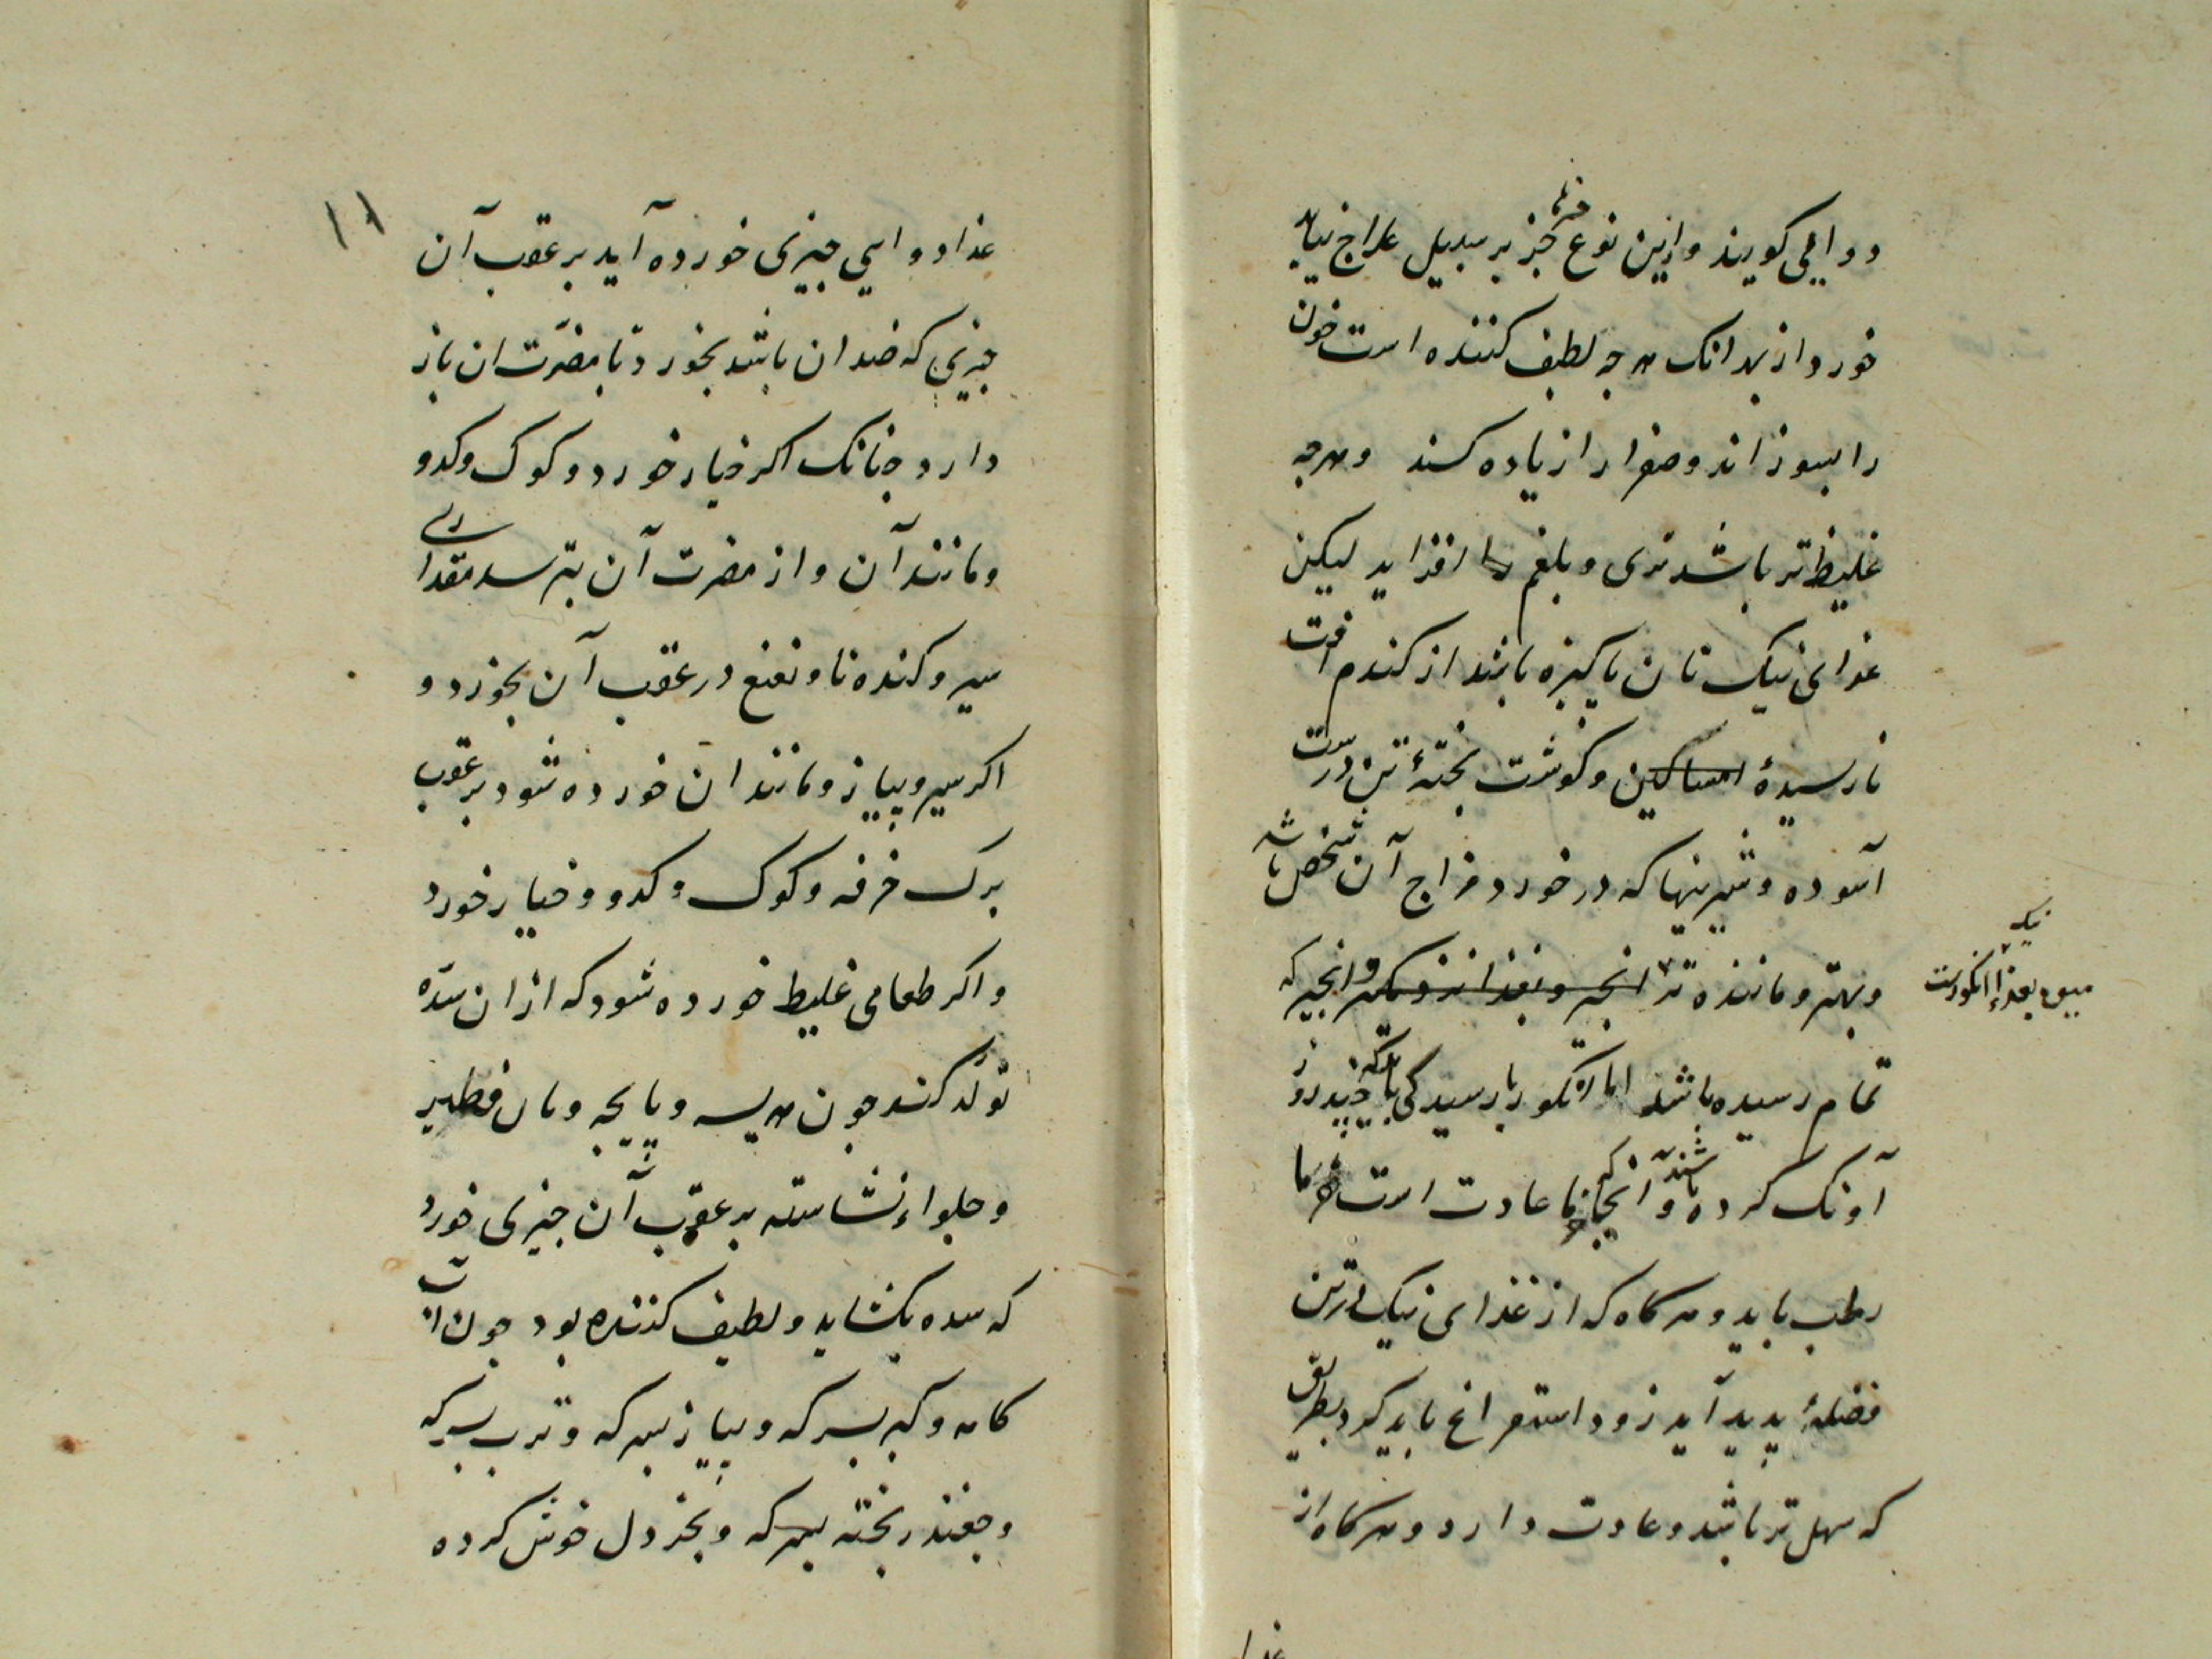 دوایی کویند وازین نوع چیزها جز بر سبیل علاج نباید
خورد از بهر انک هرجه لطیف کننده است خون
را بسوزاند وصفرا را زیاده کند وهرجه
غلیظ‌تر باشد تری وبلغم را افزاید لیکن
غذای نیک نان پاکیزه باشد از کندم آفت
نارسیدهٔ وکوشت پختهٔ تن درست
آسوده وشیرینیها که درخورد مزاج آن شخص باشد
وبهتر وماننده تر وانجیر که
میوه بغذا انکورست
تمام رسیده باشد اما انکور با رسیدکی بآنکه چند روز
آونک کرده باشند وآنجا کی خرما عادت است خرما
رطب باید وهرکاه که از غذای نیک در تن
فضلهٔ پدید آید زود استفراغ باید کرد بطریق
که سهل تر باشد وعادت دارد وهرکاه از
غذا
۱۱
غذا دوایی چیزی خورده آید بر عقب آن
چیزی که ضد ان باشد بخورد تا مضرّت ان باز
دارد چنانک اکر خیار خورد وکوک وکدو
ومانند آن واز مضرت آن بترسد مقداری
سیر وکنده‌نا ونعنع در عقب آن بخورد و
اکر سیر وپیاز ومانند ان خورده شود بر عقب
برک خرفه وکوک وکدو وخیار خورد
واکر طعامی غلیظ خورده شود که از ان سدّه
تولّد کند جون هریسه وپایچه ونان فطیر
وحلواء نشاسته بر عقب آن چیزی خورد
که سده بکشاید ولطیف کننده بود جون آب
کامه وکبر بسرکه وپیاز بسرکه وترب بسرکه
وچغندر پخته بسرکه وبخردل خوش کرده